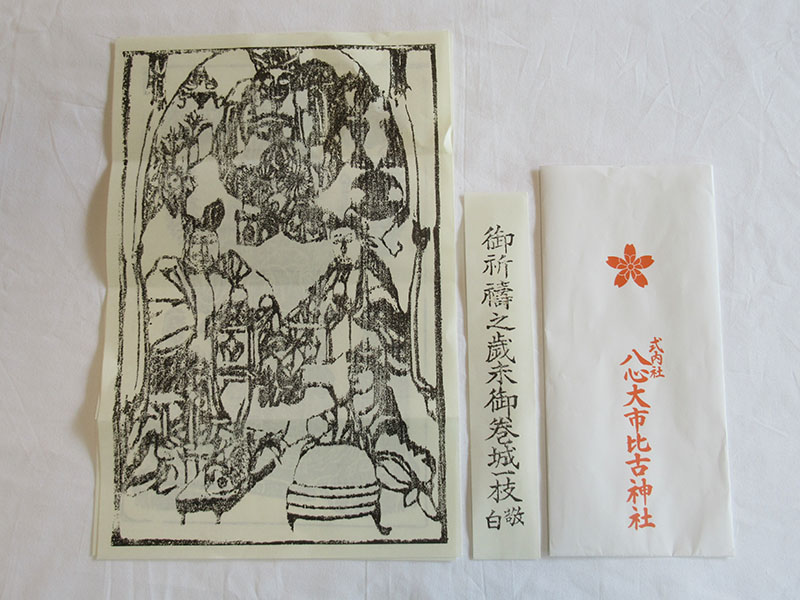 御祈禱之歳末御巻城一枝
敬白
式内社
八心大市比古神社